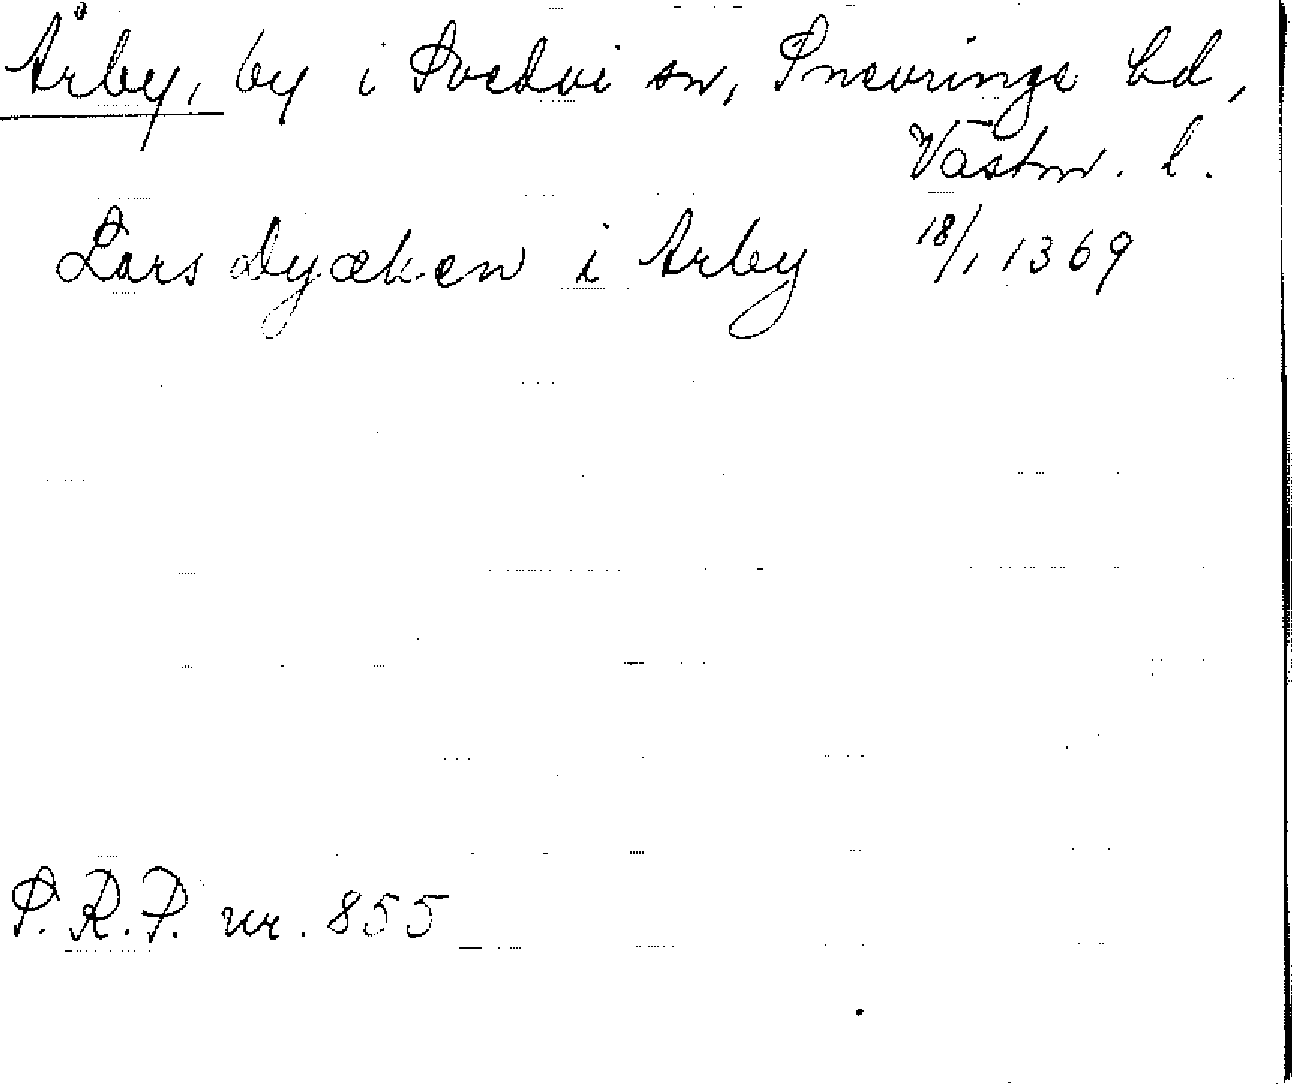 Årby, by i Svedvi sn, Snevringe hd,
Västm. l.
Lars Dyækæn i Arby 18/1 1369
S.R.P. nr. 855